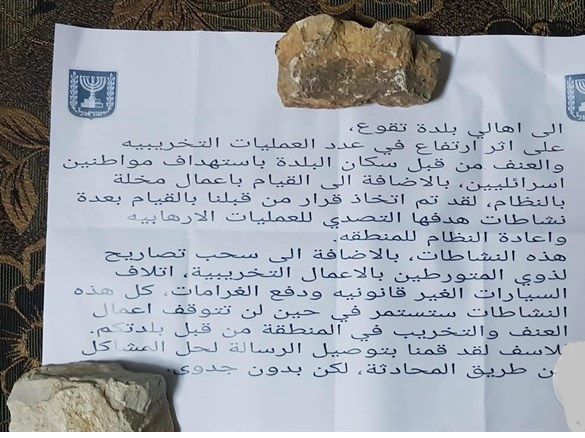 الى اهالي بلدة تقوع،
على اثر ارتفاع في عدد العمليات التخريبيه
والعنف من قبل سكان البلدة باستهداف مواطنين
اسرائليين، بالاضافة الى القيام باعمال مخلة
بالنظام، لقد تم اتخاذ قرار من قبلنا بالقيام بعدة
نشاطات هدفها التصدي للعمليات الارهابيه
واعادة النظام للمنطقه.
هذه النشاطات، بالاضافة الى سحب تصاريح
لذوي المتورطين بالاعمال التخريبية، اتلاف
السيارات الغير قانونيه ودفع الغرامات، كل هذه
النشاطات ستستمر في حين لن تتوقف اعمال
العنف والتخريب في المنطقة من قبل بلدتكم.
للاسف لقد قمنا بتوصيل الرسالة لحل المشاكل
عن طريق المحادثة، لكن بدون جدوى.